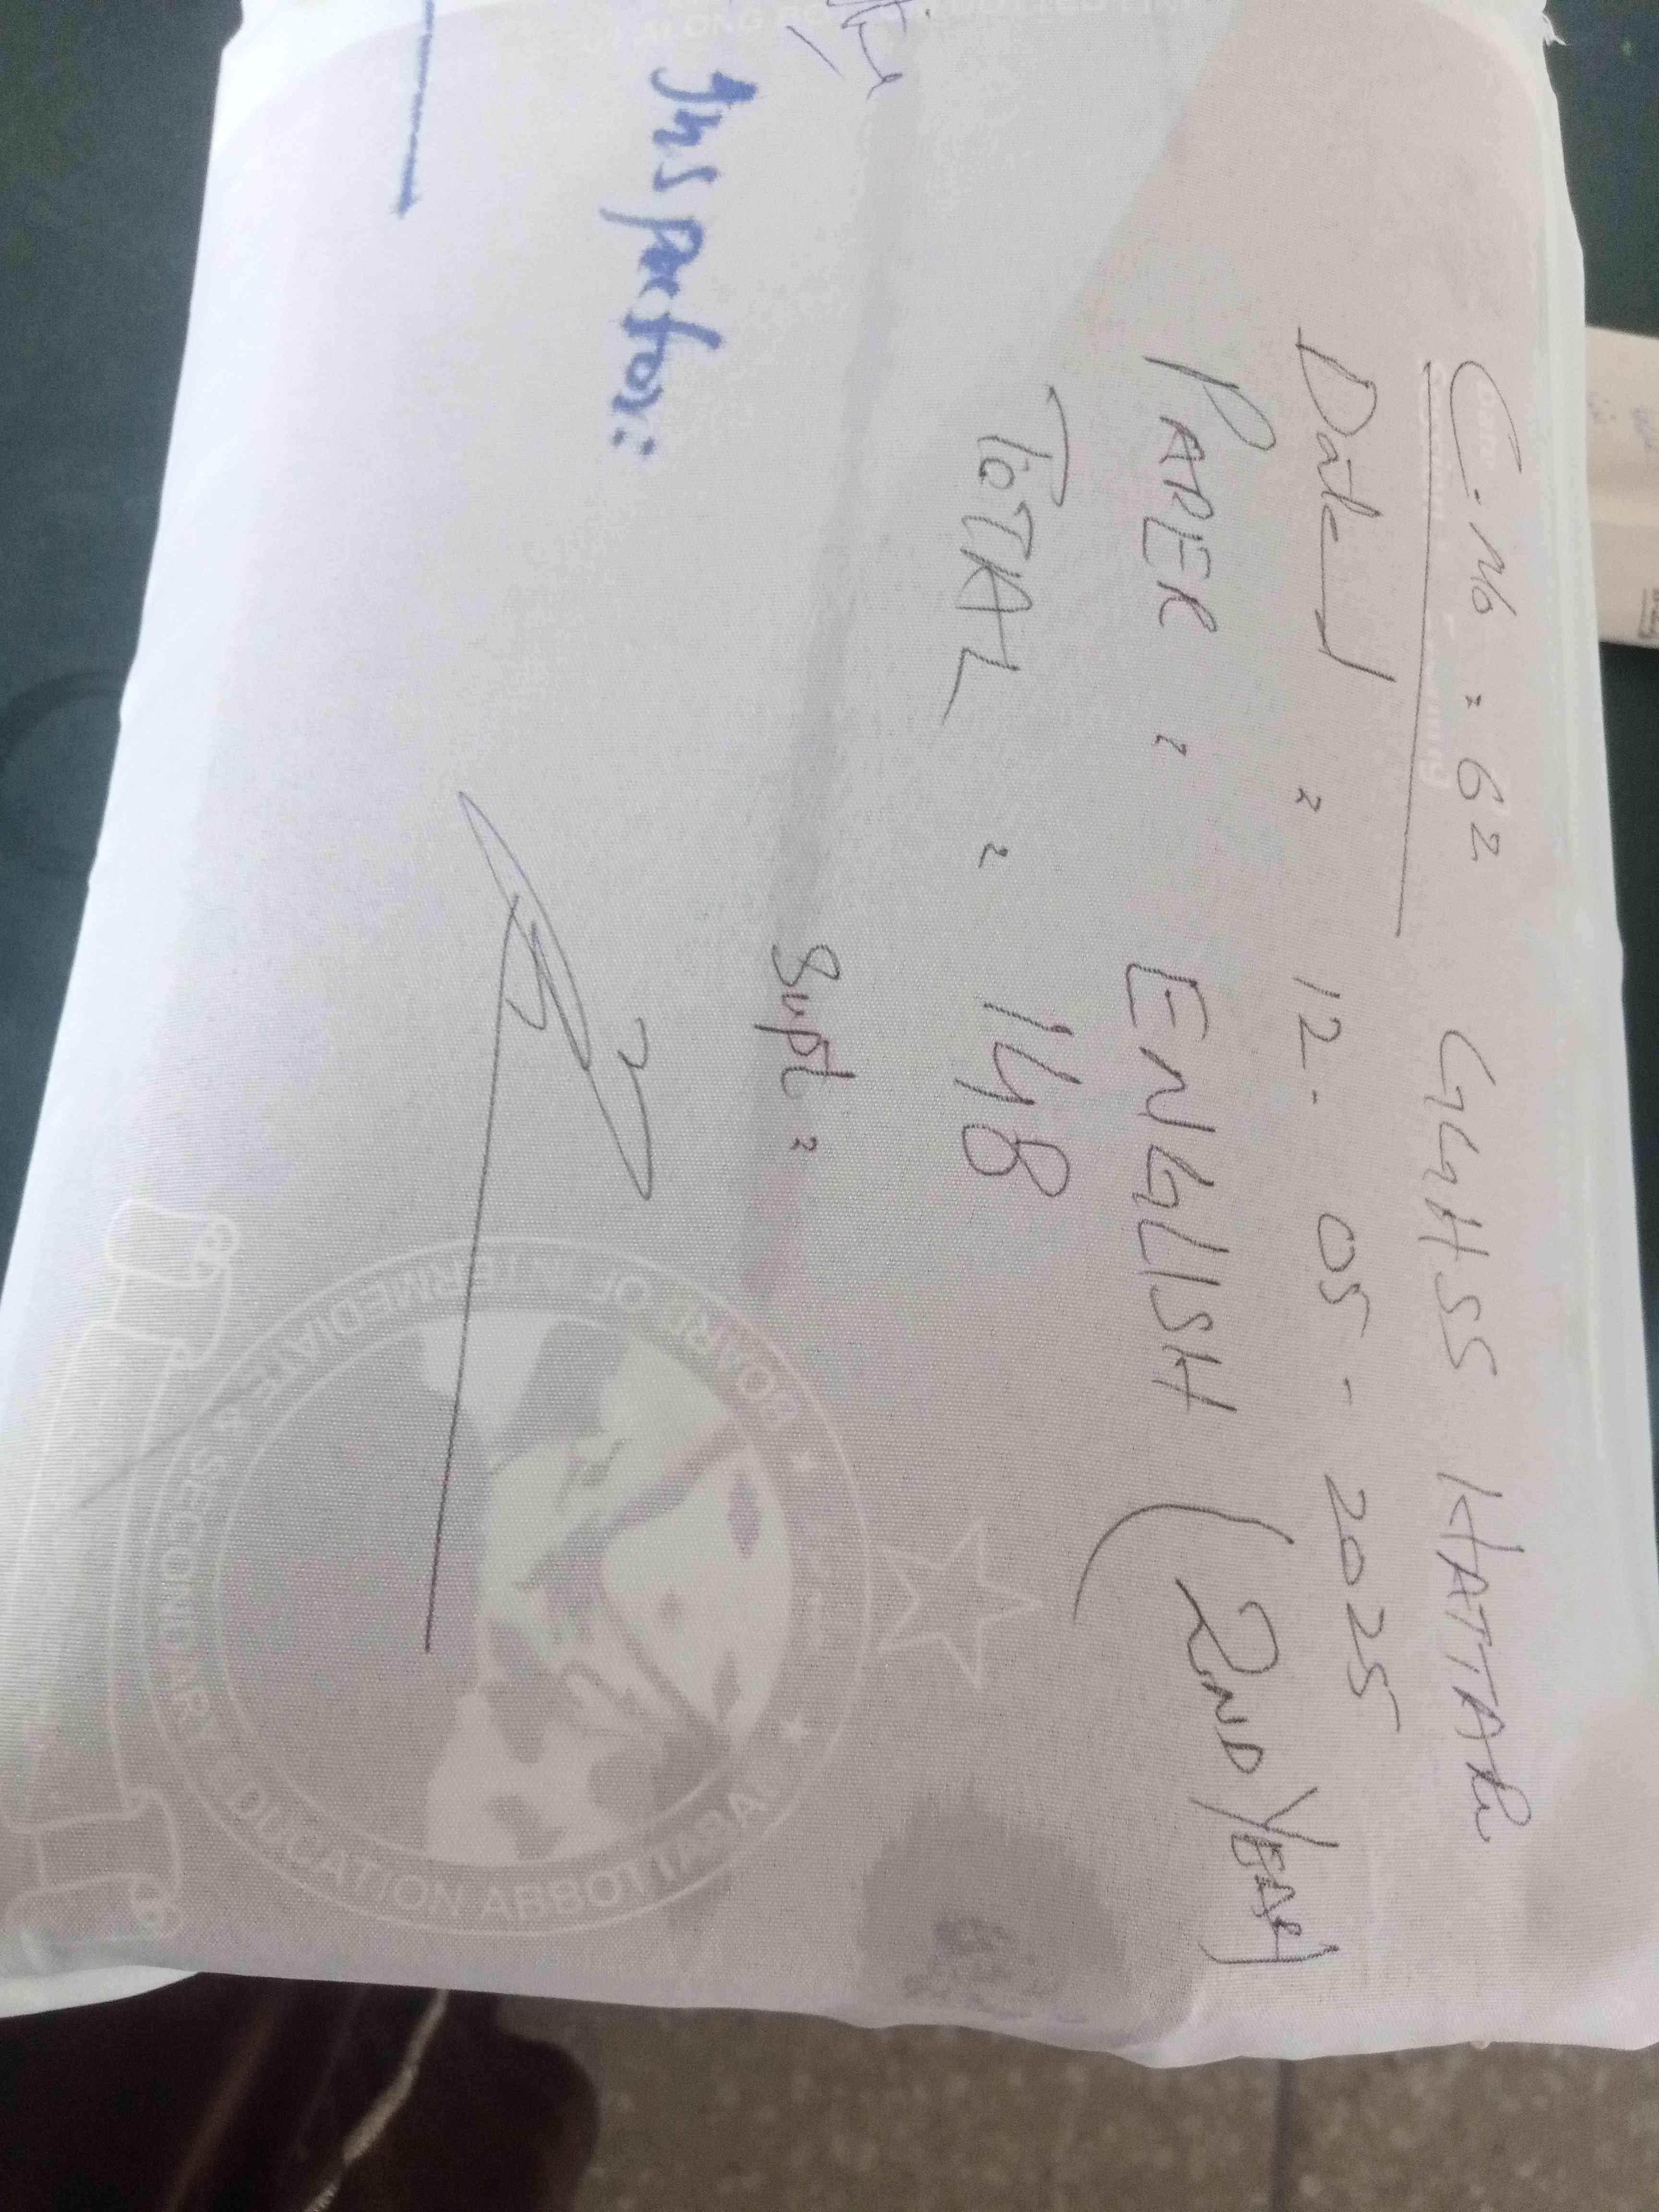 C.No = 62 GGHSS HATTAR
Date = 12-05-2025
PAPER = ENGLISH (2ND YEAR)
TOTAL = 148
Supt =
Inspector:
BOARD OF INTERMEDIATE & SECONDARY EDUCATION ABBOTTABAD